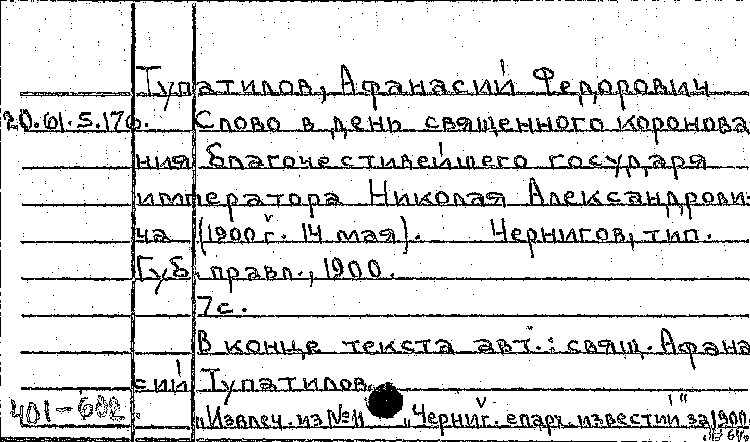 Тупатилов, Афанасий Федорович
20.61.5.176. Слово в день священного коронова
ния благочестивейшего государя
императора Николая Александрови-
ча (1900 г. 14 мая). Чернигов, тип.
Губ. правл., 1900.
7с.
В конце текста авт.: свящ. Афана
сий Тупатилов.
401-602
"Извлеч. из №11 "Черниг. епарх. известий" за 1900.